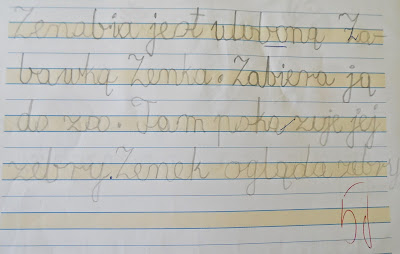 Zenabia jest ulubioną Za-
bawką Zenka. Zabiera ją
do zoo. Tam pokazuje jej
zebry. Zenek ogląda zebry